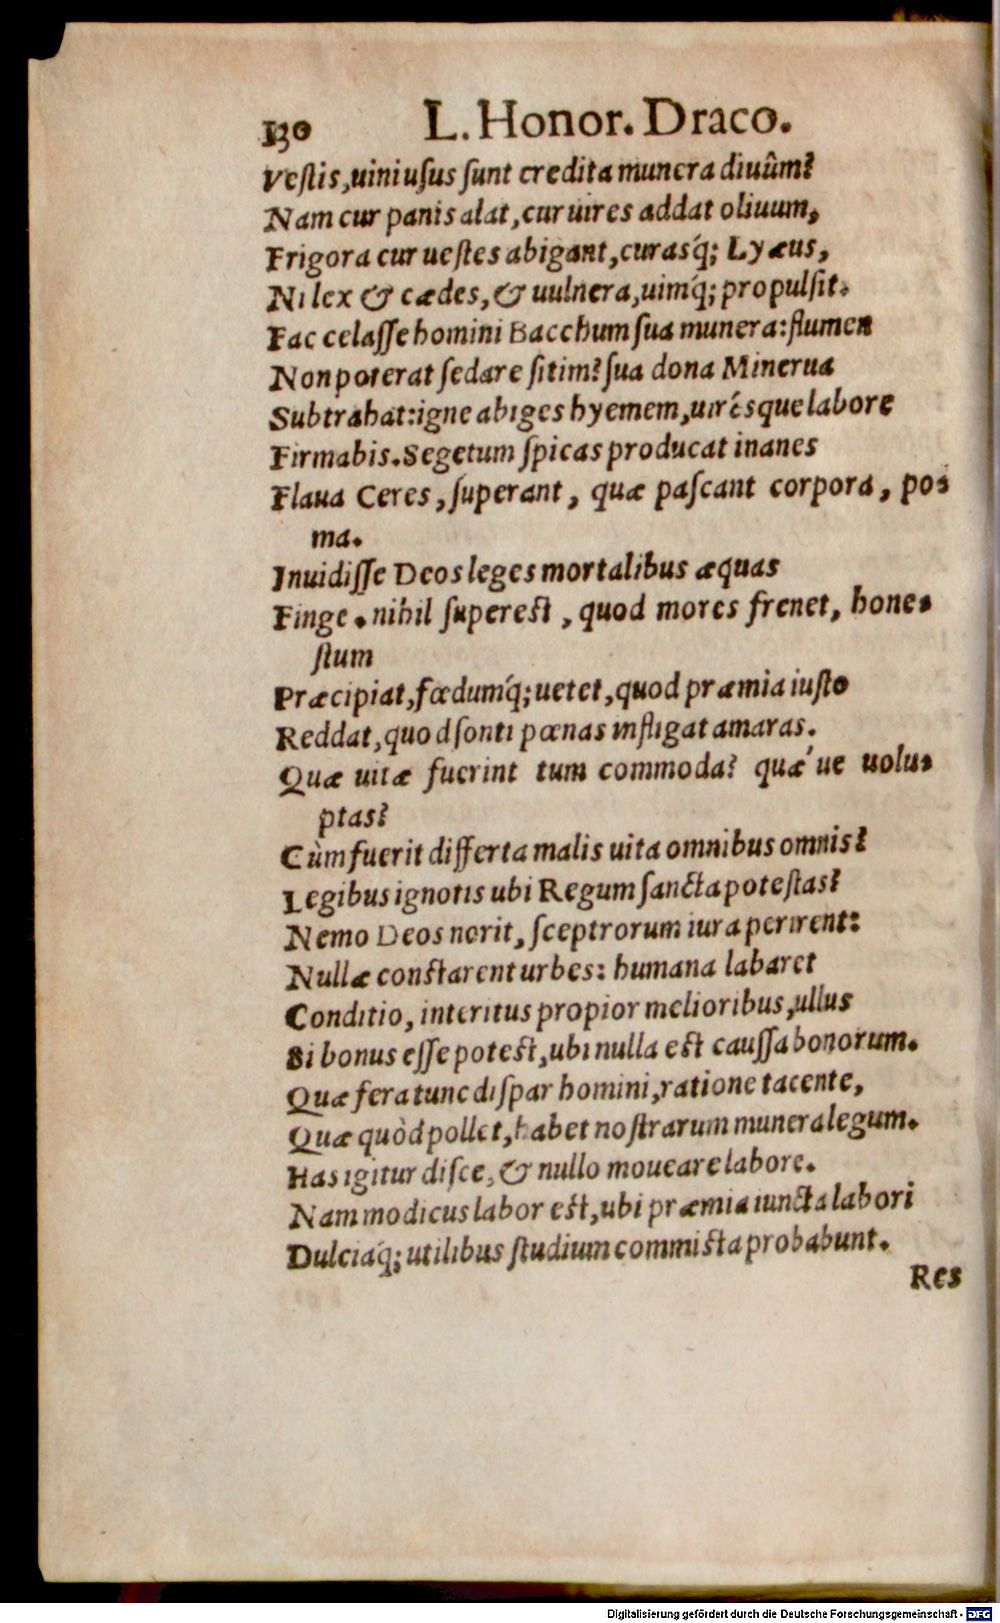 130 L. Honor. Draco.
Vestis, uini usus sunt credita munera diuûm?
Nam cur panis alat, cur uires addat oliuum,
Frigora cur uestes abigant, curasq́; Lyæus,
Ni lex & cædes, & uulnera, uimq́; propulsit.
Fac celasse homini Bacchum sua munera: flumen
Non poterat sedare sitim? sua dona Minerua
Subtrahat: igne abiges hyemem, uirésque labore
Firmabis. Segetum spicas producat inanes
Flaua Ceres, superant, quæ pascant corpora, po-
ma.
Inuidisse Deos leges mortalibus æquas
Finge. nihil superest, quod mores frenet, hone-
stum
Præcipiat, fœdumq́; uetet, quod præmia iusto
Reddat, quod sonti pœnas infligat amaras.
Quæ uitæ fuerint tum commoda? quæ´ue uolu-
ptas?
Cùm fuerit differta malis uita omnibus omnis?
Legibus ignotis ubi Regum sancta potestas?
Nemo Deos norit, sceptrorum iura perirent:
Nullæ constarent urbes: humana labaret
Conditio, interitus propior melioribus, ullus
Si bonus esse potest, ubi nulla est caussa bonorum.
Quæ fera tunc dispar homini, ratione tacente,
Quæ quòd pollet, habet nostrarum munera legum.
Has igitur disce, & nullo moueare labore.
Nam modicus labor est, ubi præmia iuncta labori
Dulciaq́; utilibus studium commista probabunt.
Res
Digitalisierung gefördert durch die Deutsche Forschungsgemeinschaft - DFG